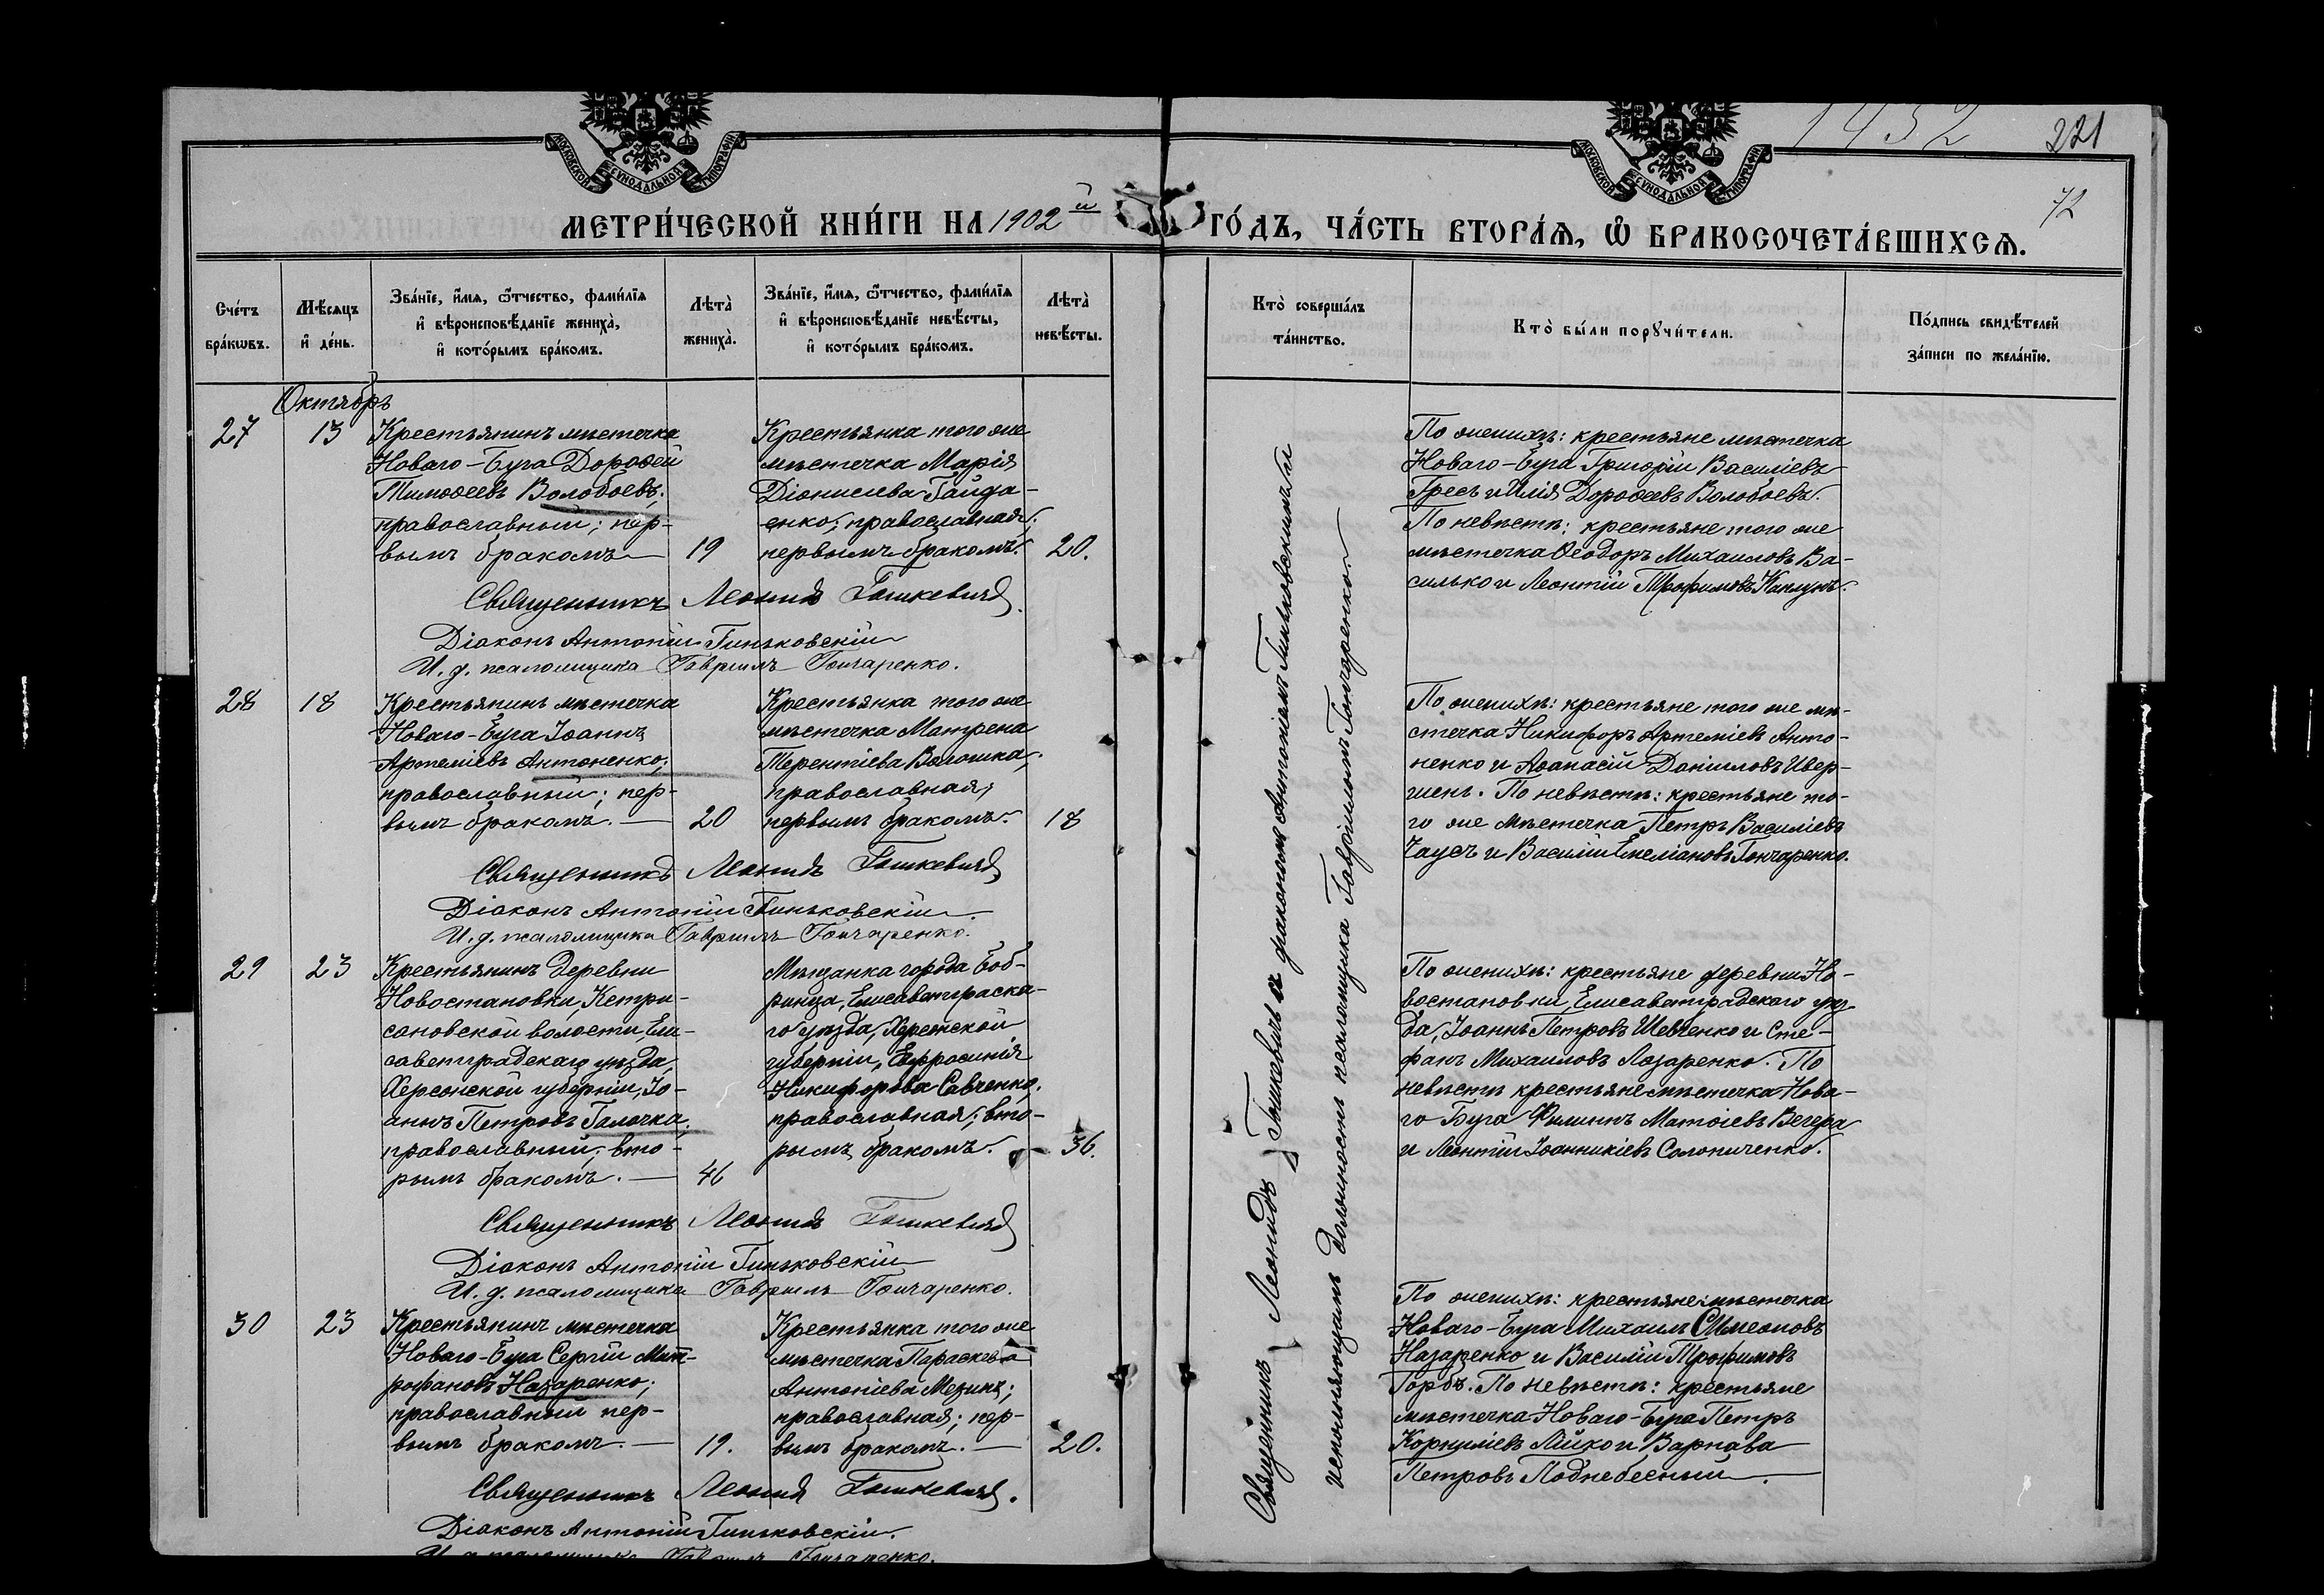 МОСКОВСКОЙ СѴНОДАЛЬНОЙ ТИПОГРАФІИ
МОСКОВСКОЙ СѴНОДАЛЬНОЙ ТИПОГРАФІИ
1432
221
72
МЕТРИ́ЧЕСКОЙ КНИ́ГИ НА 1902й
ГО́ДЪ, ЧА́СТЬ ВТОРА́Ѧ, Ѡ҆ БРАКОСОЧЕТА́ВШИХСѦ.
Сче́тъ бра́кѡвъ.
Мѣ́сѧцъ и҆ де́нь.
Зва́нїе, и҆́мѧ, ѻ҆́тчество, фами́лїѧ и҆ вѣроисповѣ́данїе жениха̀, и҆ кото́рымъ бра́комъ.
Лѣта̀ жениха̀.
Зва́нїе, и҆́мѧ, ѻ҆́тчество, фами́лїѧ и҆ вѣроисповѣ́данїе невѣ́сты, и҆ кото́рымъ бра́комъ.
Лѣта̀ невѣ́сты.
Кто̀ соверша́лъ та́инство.
Кто̀ бы́ли порꙋчи́тели.
По́дпись свидѣ́телей за́писи по жела́нїю.
Октябрь
27
13
Крестьянинъ мѣстечка
Новаго-Буга Дороѳей
Тимоѳеевъ Волобоевъ;
православный; пер-
вымъ бракомъ
19
Крестьянка того же
мѣстечка Марія
Діонисіева Гайда-
енко; православная;
первымъ бракомъ.
20.
По женихѣ: крестьяне мѣстечка
Новаго-Буга Григорій Василіевъ
Гресь и Илія Дороѳеевъ Волобоевъ.
По невѣстѣ: крестьяне того же
мѣстечка Ѳеодоръ Михаиловъ Ва-
силько и Леонтій Трофимовъ
Священникъ Леонидъ Гошкевичъ
Діаконъ Антоній Гиньковскій
И. д. псаломщика Гавріилъ Гончаренко.
28
18
Крестьянинъ мѣстечка
Новаго-Буга Іоаннъ
Артеміевъ Антоненко;
православный; пер-
вымъ бракомъ.
20
Крестьянка того же
мѣстечка Матрена
Терентіева Волошка;
православная;
первымъ бракомъ.
18
По женихѣ: крестьяне того же мѣ-
стечка Никифоръ Артеміевъ Анто-
ненко и Аѳанасій Даніиловъ Ивер-
шень. По невѣстѣ: крестьяне то-
го же мѣстечка Петръ Василіевъ
Чаусъ и Василій Емеліановъ Гончаренко.
Священникъ Леонидъ Гошкевичъ
Діаконъ Антоній Гиньковскій
И. д. псаломщика Гавріилъ Гончаренко.
29
23
Крестьянинъ деревни
Новостановки, Кетри-
сановской волости, Ели-
саветградскаго уѣзда,
Херсонской губерніи, Іо-
аннъ Петровъ Галочка;
православный; вто-
рымъ бракомъ.
46
Мѣщанка города Боб-
ринца, Елисаветградска-
го уѣзда, Херсонской
губерніи, Евфросинія
Никифорова Савченко;
православная; вто-
рымъ бракомъ.
36.
По женихѣ: крестьяне деревни Но-
востановки, Елисаветградскаго уѣз-
да, Іоаннъ Петровъ Шевченко и Сте-
фанъ Михаиловъ Лазаренко. По
невѣстѣ крестьяне мѣстечка Нова-
го Буга Филиппъ Матѳіевъ Вечера
и Леонтій Іоанникіевъ Солопиченко.
Священникъ Леонидъ Гошкевичъ
Діаконъ Антоній Гиньковскій
И. д. псаломщика Гавріилъ Гончаренко.
30
23
Крестьянинъ мѣстечка
Новаго-Буга Сергій Мит-
рофановъ Назаренко;
православный пер-
вымъ бракомъ.
19.
Крестьянка того же
мѣстечка Параскева
Антоніева Мезинъ;
православная; пер-
вымъ бракомъ.
20.
По женихѣ: крестьяне мѣстечка
Новаго-Буга Михаилъ Симеоновъ
Назаренко и Василій Трофимовъ
Горбъ. По невѣстѣ: крестьяне
мѣстечка Новаго-Буга Петръ
Корниліевъ Лійко и Варнава
Петровъ Поднебесный.
Священникъ Леонидъ Гошкевичъ.
Діаконъ Антоній Гиньковскій.
И. д. псаломщика Гавріилъ Гончаренко.
Священникъ Леонидъ Гошкевичъ съ діакономъ Антоніемъ Гиньковскимъ и
исполняющимъ должность псаломщика Гавріиломъ Гончаренко